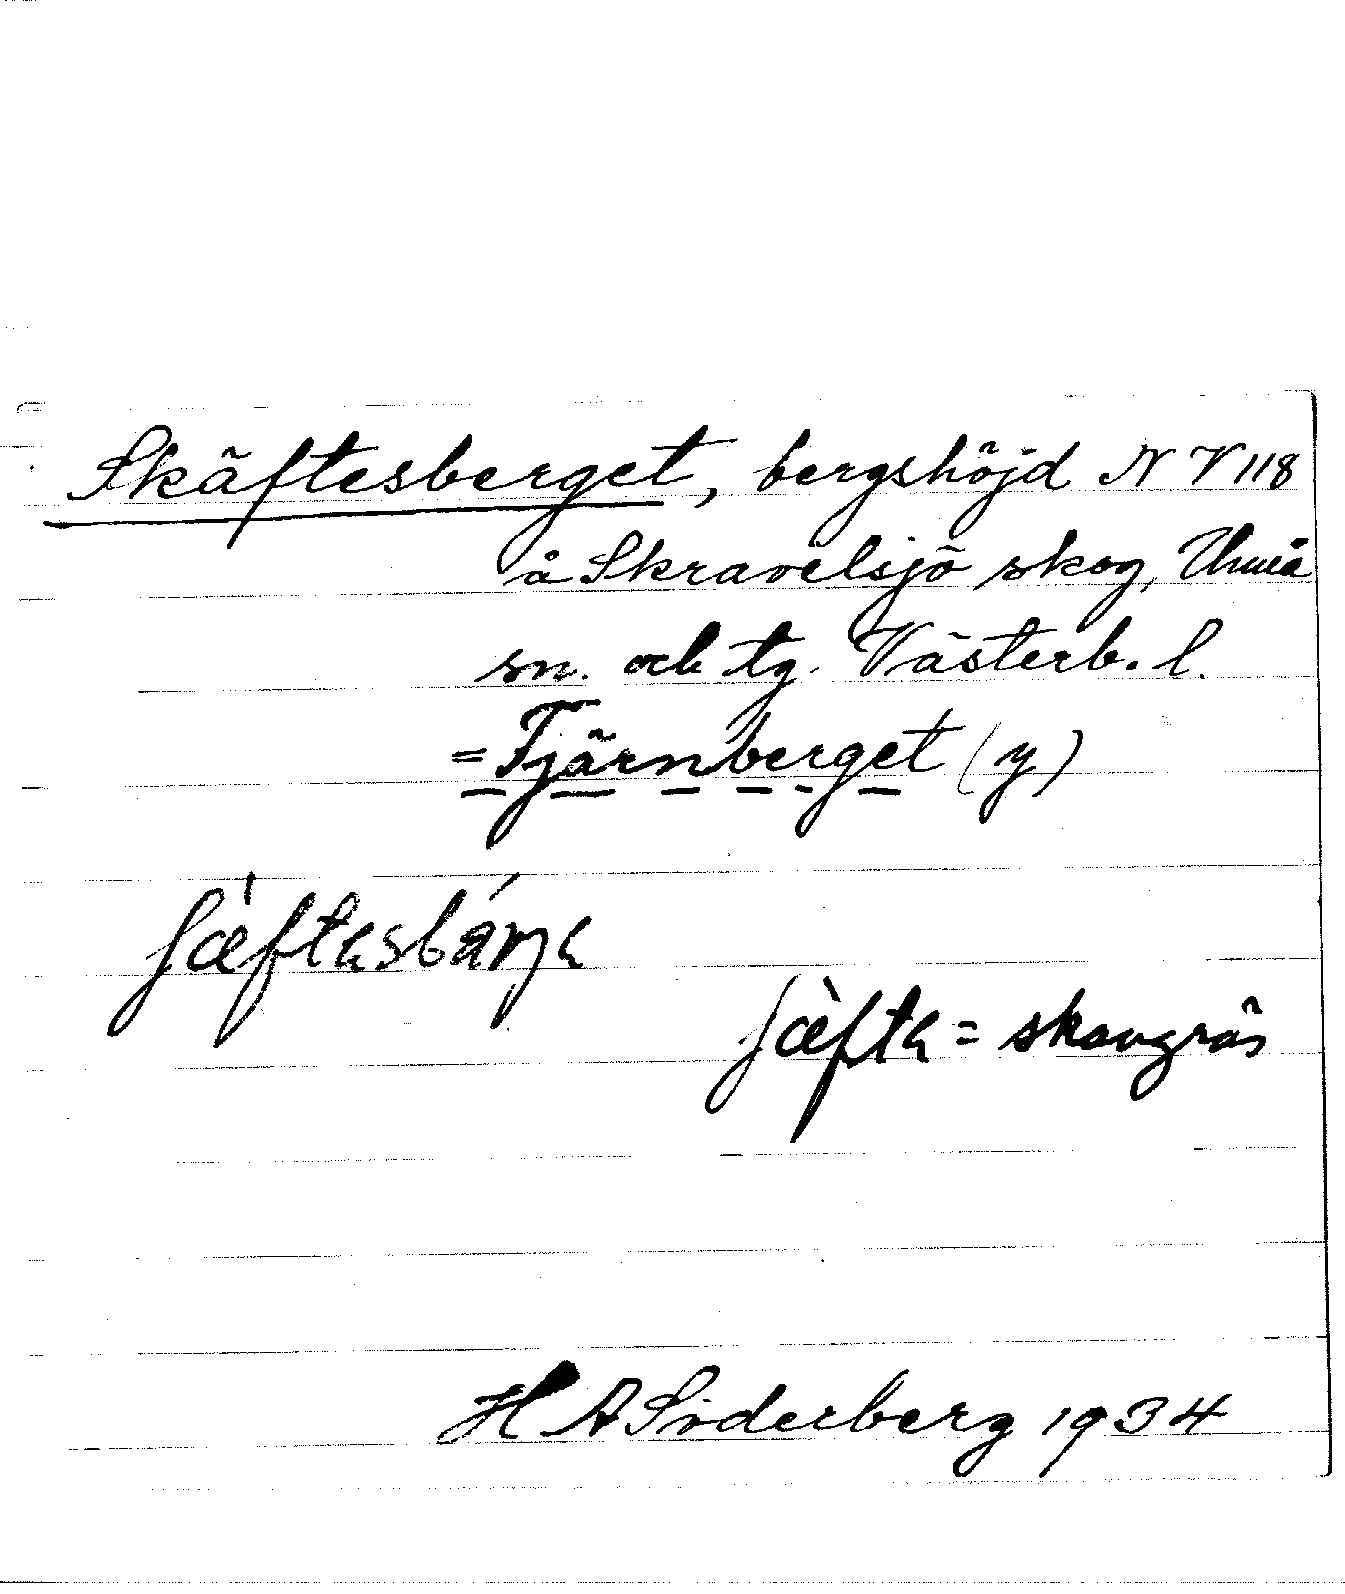 Skäftesberget, bergshöjd N V 118
å Skravelsjö skog, Umeå
sn. och tg. Västerb. l.
= Tjärnberget (y)
= skavgräs
H A Söderberg 1934